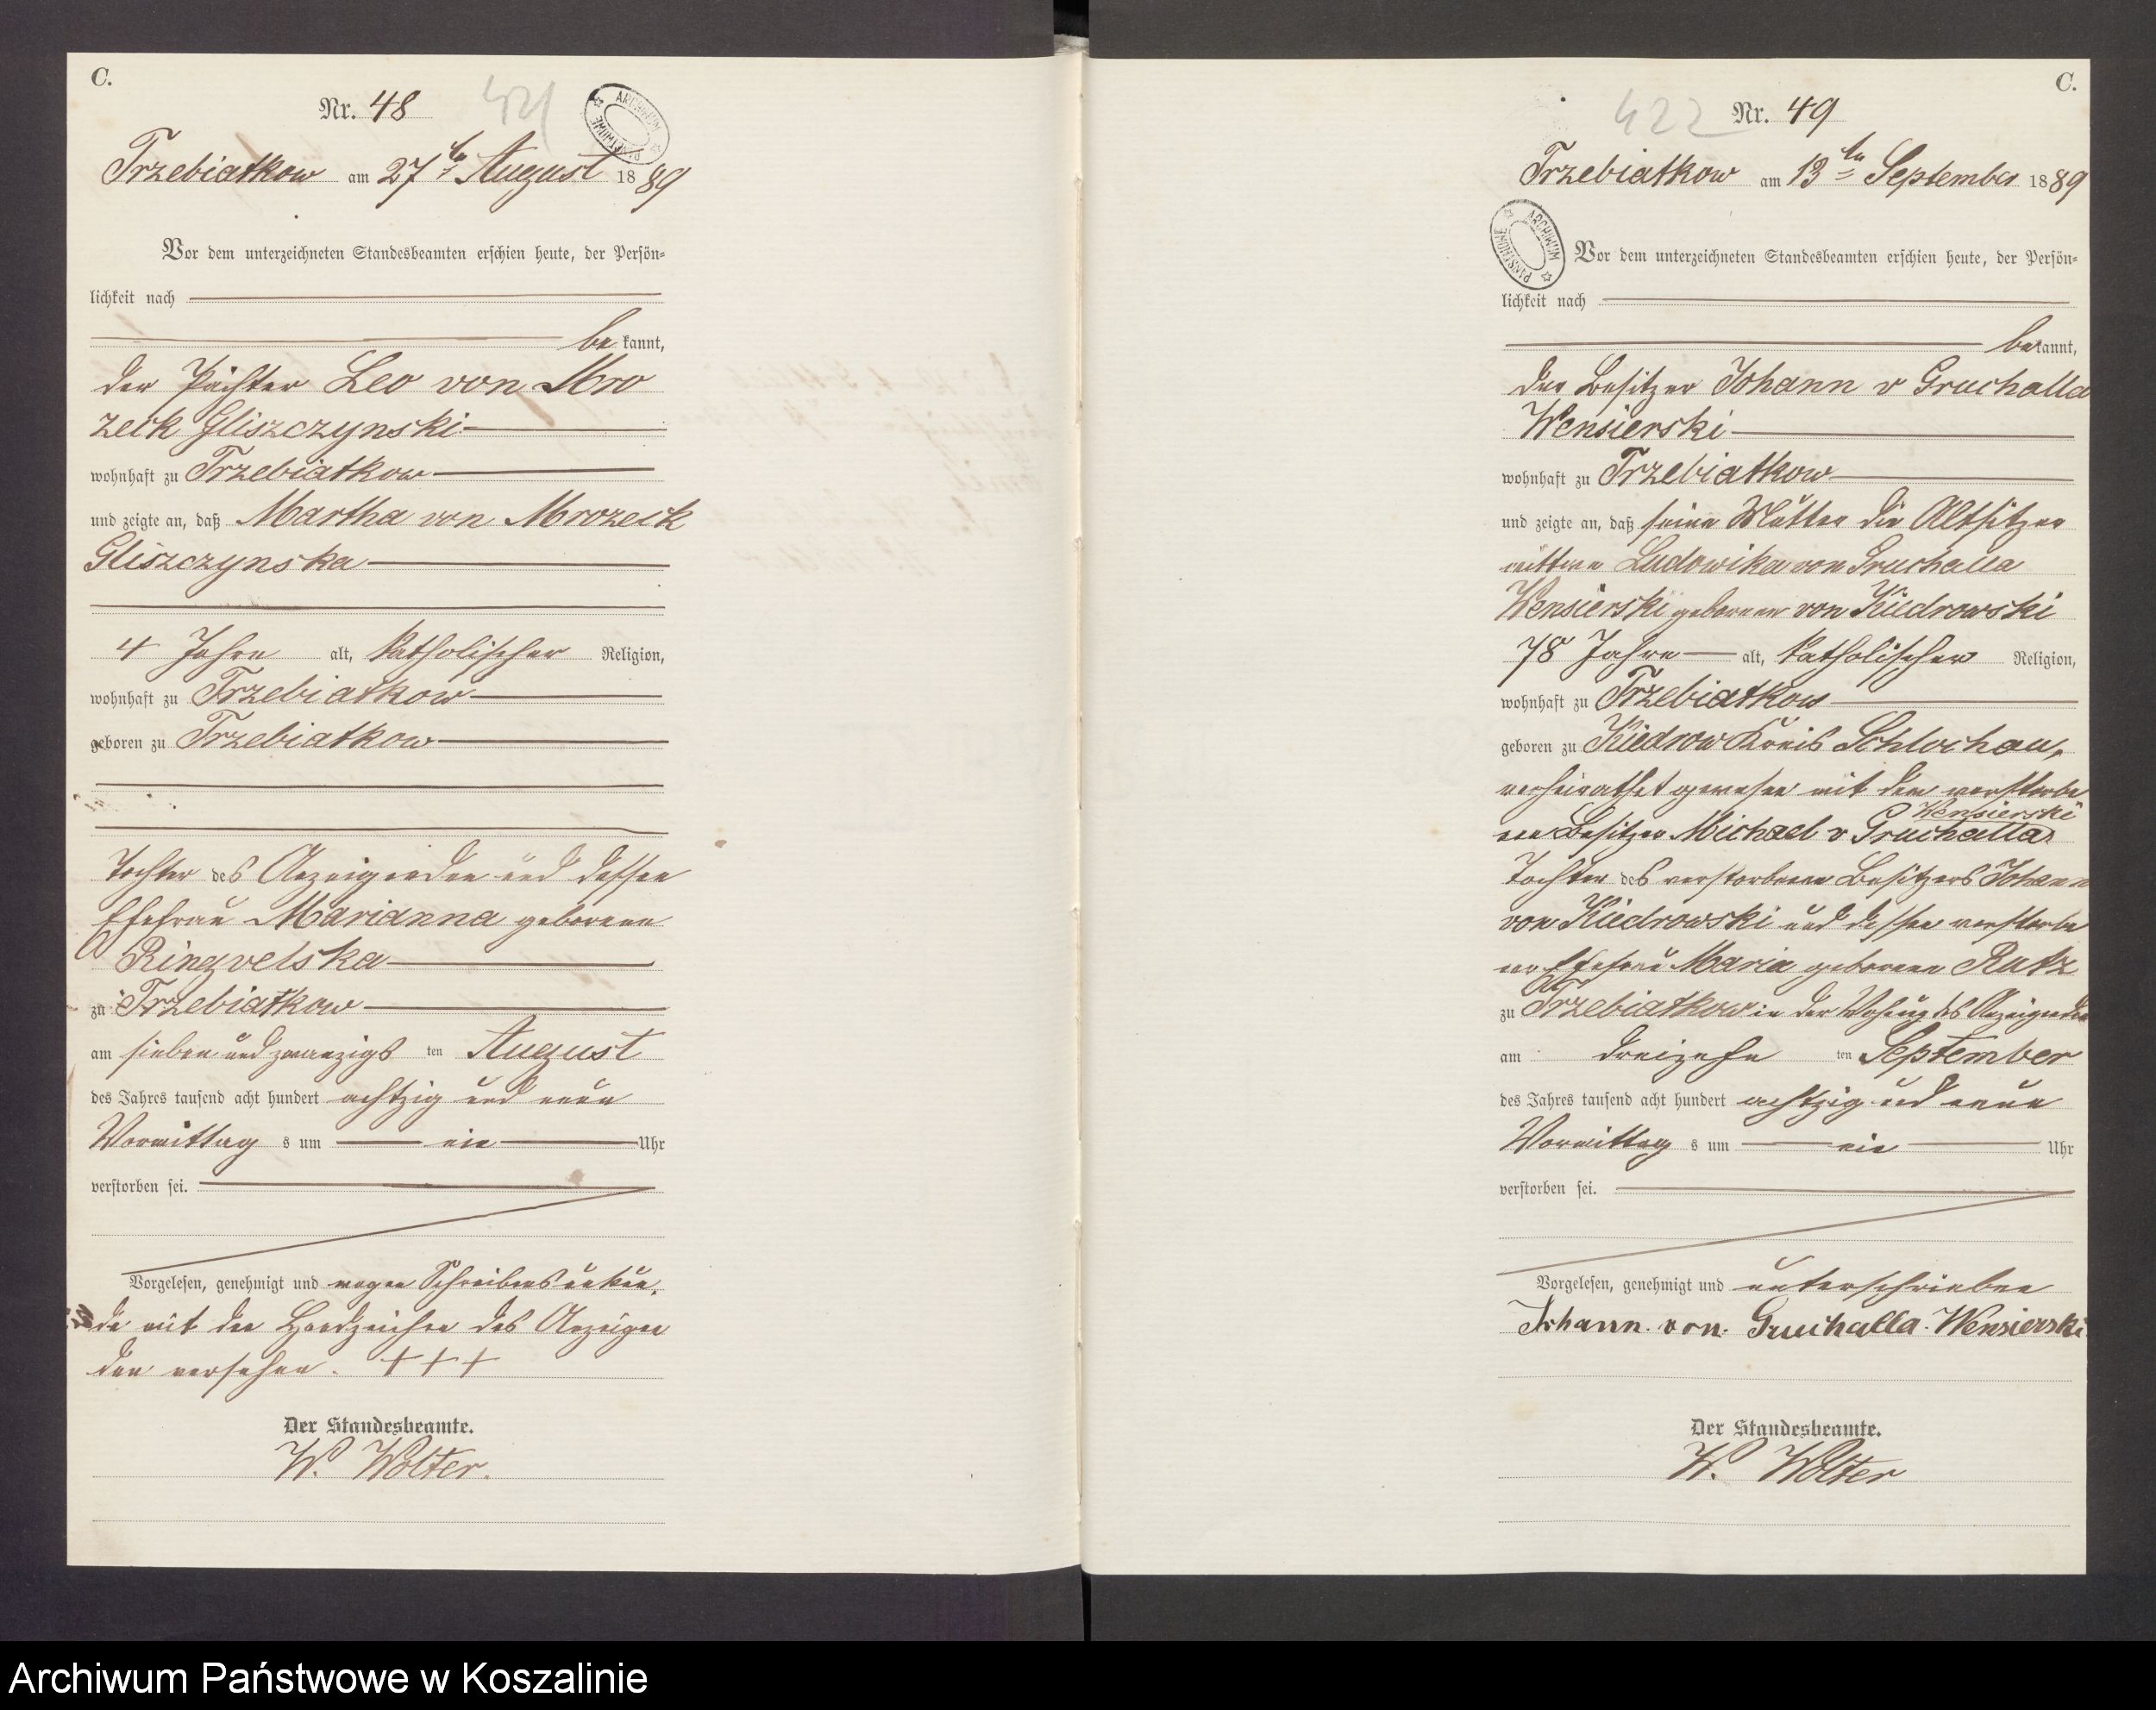 C.
Nr. 48
421
ARCHIWUM PAŃSTWOWE
Trzebiatkow am 27ten August 1889
Vor dem unterzeichneten Standesbeamten erschien heute, der Persön-
lichkeit nach
be kannt,
der Pächter Leo von Mro
zeck Gliszczynski
wohnhaft zu Trzebiatkow
und zeigte an, daß Martha von Mrozeck
Gliszczynska
4 Jahre alt, katholischer Religion,
wohnhaft zu Trzebiatkow
geboren zu Trzebiatkow
Tochter des Anzeigenden und dessen
Ehefrau Marianna geborenen
Ringwelska
zu Trzebiatkow
am sieben und zwanzigs ten August
des Jahres tausend acht hundert achtzig und neun
Vormittag s um ein Uhr
verstorben sei.
Vorgelesen, genehmigt und wegen Schreibensunkun
de mit den Handzeichen des Anzeigen
den versehen. +++
Der Standesbeamte.
W. Wolter.
C.
422 Nr. 49
Trzebiatkow am 13ten September 1889
ARCHIWUM PAŃSTWOWE
Vor dem unterzeichneten Standesbeamten erschien heute, der Persön-
lichkeit nach
bekannt,
der Besitzer Johann v Gruchalla
Wensierski
wohnhaft zu Trzebiatkow
und zeigte an, daß seine Mutter die Altsitzer
wittwe Ludowika von Gruchalla
Wensierski geborenen von Kiedrowski
78 Jahre alt, katholischer Religion,
wohnhaft zu Trzebiatkow
geboren zu Kiedrow Kreis Schlochau,
verheirathet gewesen mit dem verstorbe
Wensierski
nen Besitzer Michael v Gruchalla
Tochter des verstorbenen Besitzers Johann
von Kiedrowski und dessen verstorbe
ner Ehefrau Maria geborenen Rutz
zu Trzebiatkow in der Wohnung des Anzeigenden
am dreizehn ten September
des Jahres tausend acht hundert achtzig und neun
Vormittag s um ein Uhr
verstorben sei.
Vorgelesen, genehmigt und unterschrieben
Johann. von. Gruchalla. Wensierski
Der Standesbeamte.
W. Wolter
Archiwum Państwowe w Koszalinie